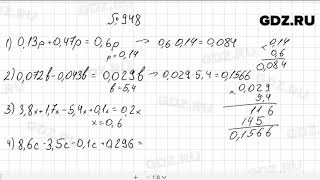 № 948
GDZ.RU
1) 0,13p+0,47p=0,6p → 0,6·0,14=0,084
p=0,14
×0,14
0,6
0,084
2) 0,072b-0,043b=0,029b → 0,029·5,4=0,1566
b=5,4
×0,029
5,4
116
145
0,1566
3) 3,8x+1,7x-5,4x+0,1x=0,2x
x=0,6
4) 8,6c-3,5c-0,1c+0,296=
GDZ.RU